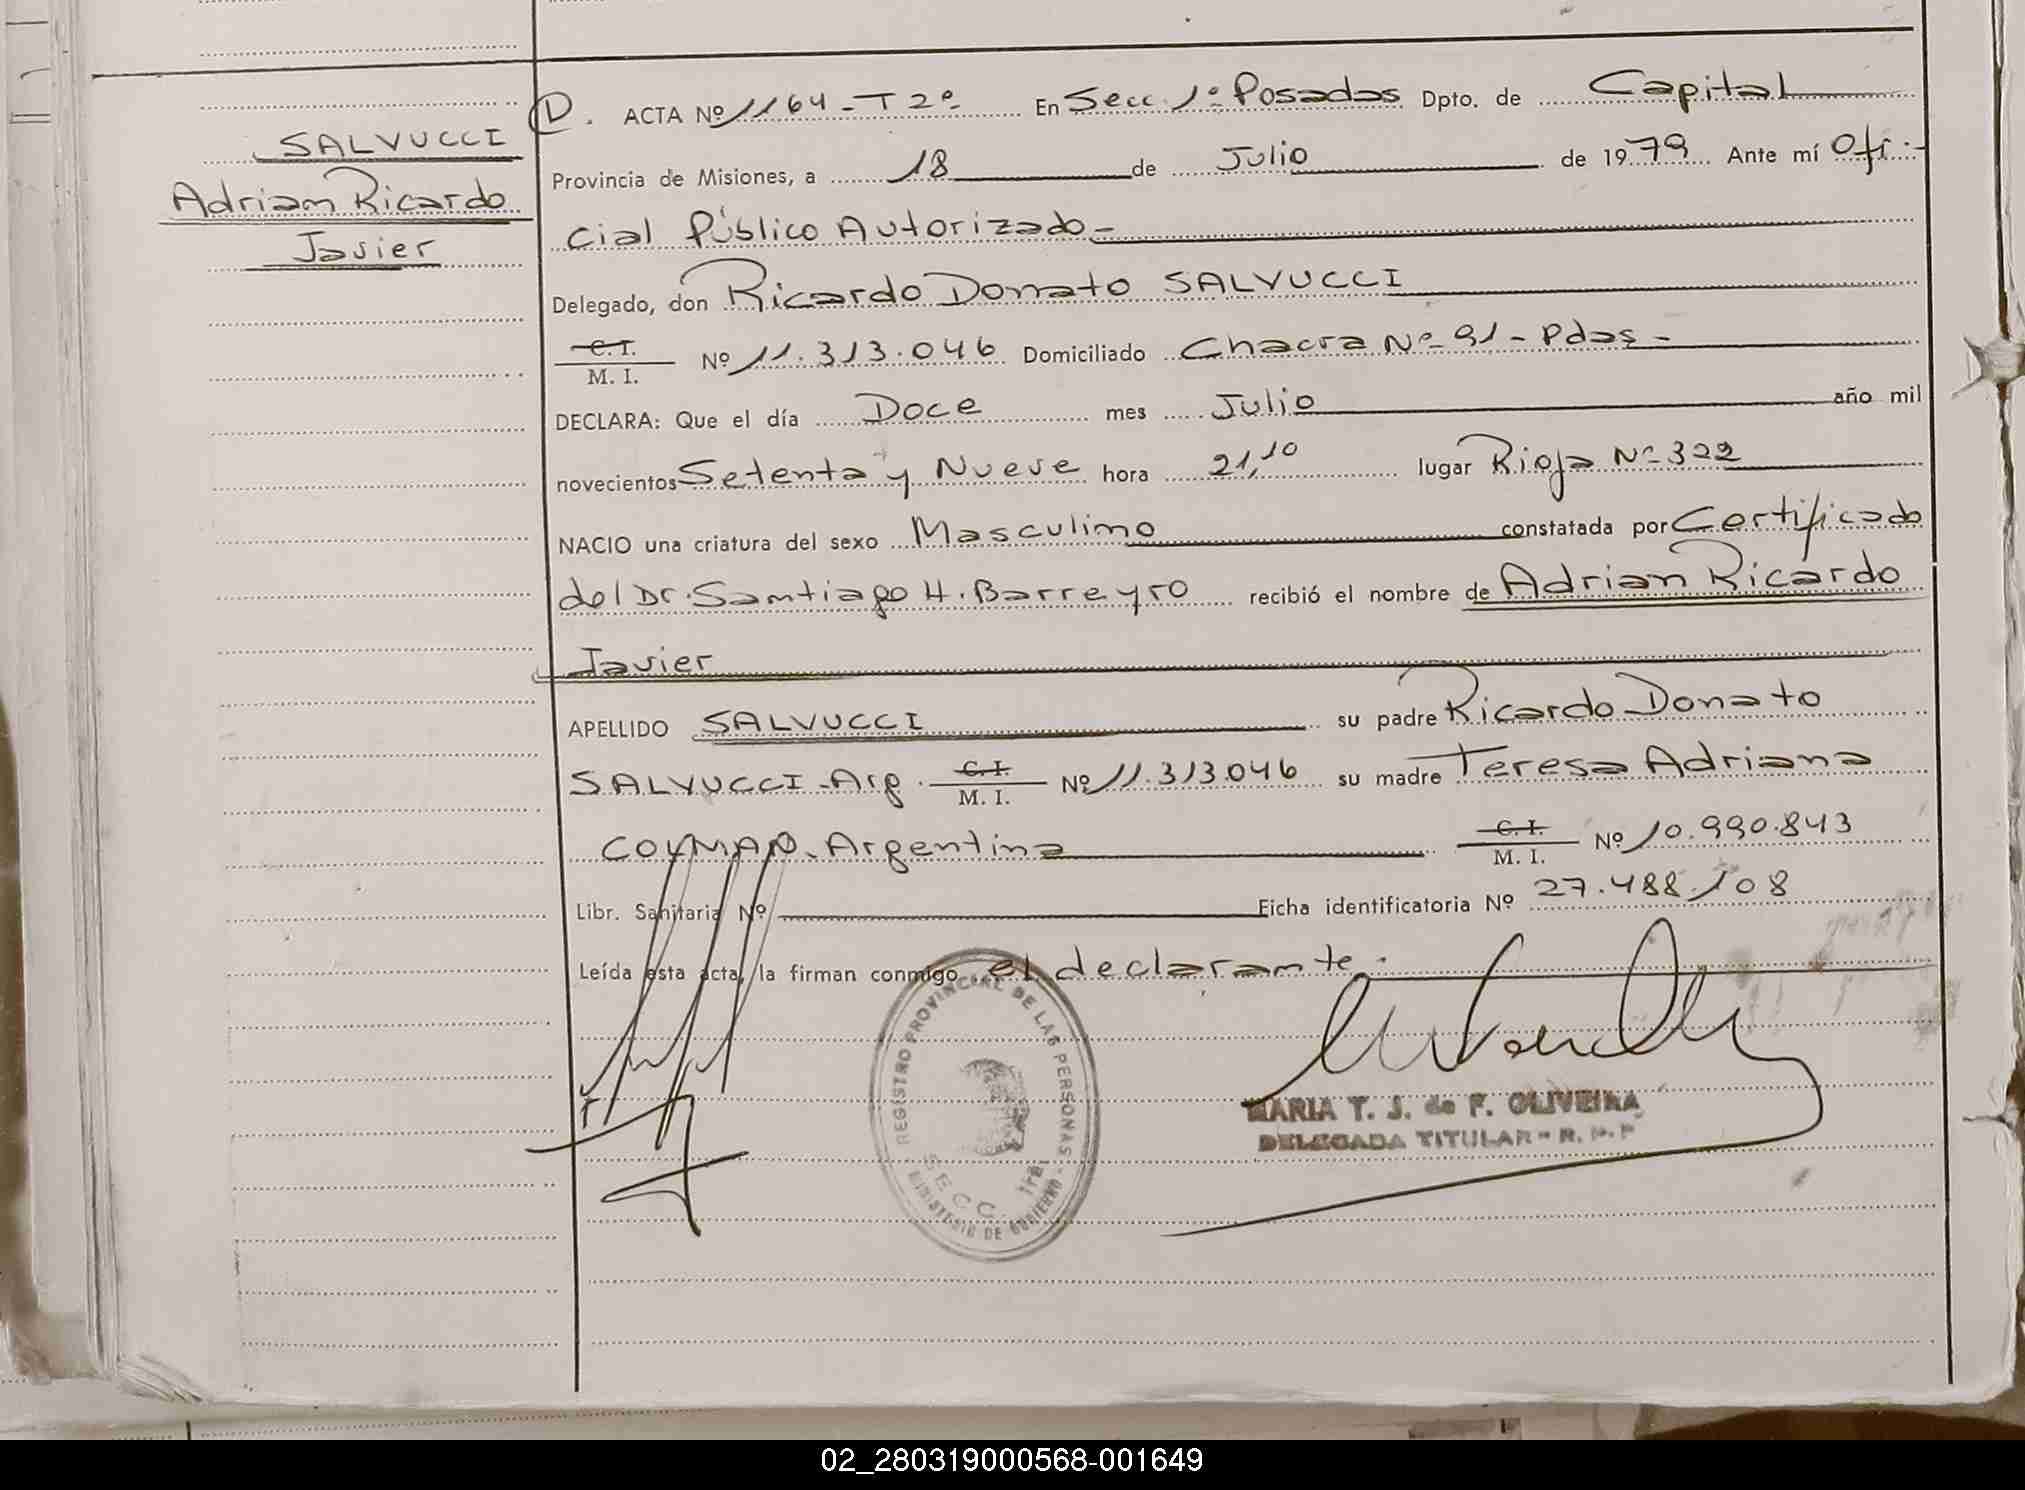 SALVUCCI
Adrian Ricardo
Javier
D. ACTA Nº 1164 - T 2º En Secc. 1º Posadas Dpto. de Capital
Provincia de Misiones, a 18 de Julio de 1979 Ante mí Ofi-
cial Público Autorizado -
Delegado, don Ricardo Donato SALVUCCI
C. I.
M. I. Nº 11.313.046 Domiciliado Chacra Nº 91 - Pdas -
DECLARA: Que el día Doce mes Julio año mil
novecientos Setenta y Nueve hora 21,10 lugar Rioja Nº 322
NACIO una criatura del sexo Masculino constatada por Certificado
del Dr. Santiago H. Barreyro recibió el nombre de Adrian Ricardo
Javier
APELLIDO SALVUCCI su padre Ricardo Donato
SALVUCCI - Arg. C. I. M. I. Nº 11.313.046 su madre Teresa Adriana
COLMAN. Argentina C. I. M. I. Nº 10.990.843
Libr. Sanitaria Nº Ficha identificatoria Nº 27.488.108
Leída esta acta, la firman conmigo el declarante.
REGISTRO PROVINCIAL DE LAS PERSONAS
SECC. 1ra.
MINISTERIO DE GOBIERNO
MARIA T. J. de F. OLIVEIRA
DELEGADA TITULAR - R. P. P
02_280319000568-001649